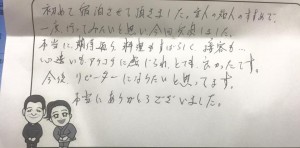 初めて宿泊させて頂きました。主人の知人のすすめで、
一度行ってみたいと思い今回
本当に、期待通り、料理もすばらしく、接客も…
心遣いをアチコチに感じられ、とても良かったです。
今後リピーターになりたいと思ってます。
本当にありがとうございました。